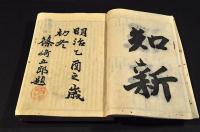 知新
明治乙酉之歳
初冬
篠崎五郎題